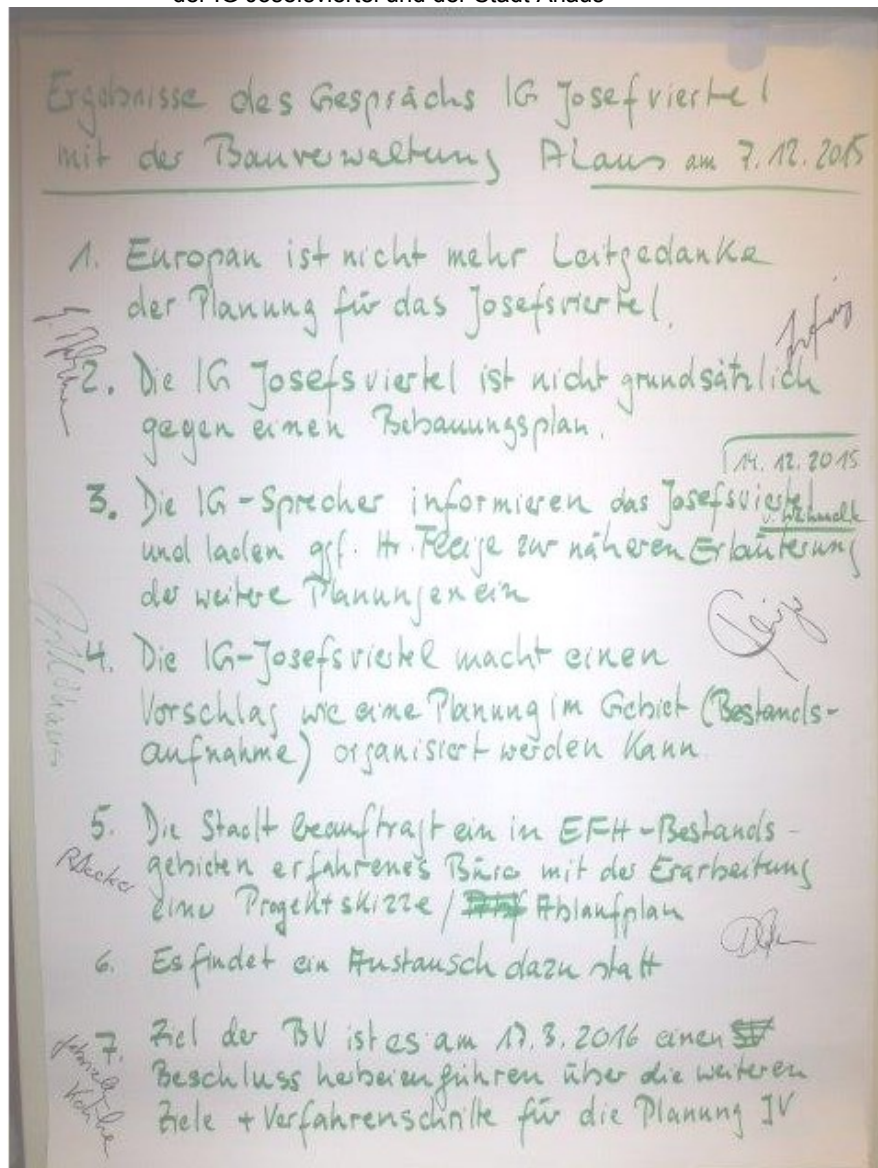 der IG Josefsviertel und der Stadt Ahaus
Ergebnisse des Gesprächs IG Josefviertel
mit der Bauverwaltung Ahaus am 7.12.2015
1. Europan ist nicht mehr Leitgedanke
der Planung für das Josefsviertel.
2. Die IG Josefsviertel ist nicht grundsätzlich
gegen einen Bebauungsplan.
14.12.2015
3. Die IG-Sprecher informieren das Josefsviertel
und laden ggf. Hr. Fleige zur näheren Erläuterung
der weitere Planungen ein
4. Die IG-Josefsviertel macht einen
Vorschlag wie eine Planung im Gebiet (Bestands-
aufnahme) organisiert werden kann
5. Die Stadt beauftragt ein in EFH-Bestands-
gebieten erfahrenes Büro mit der Erarbeitung
einer Projektskizze / Ablaufplan
6. Es findet ein Austausch dazu statt
7. Ziel der BV ist es am 17.3.2016 einen
Beschluss herbeizuführen über die weiteren
Ziele + Verfahrenschritte für die Planung JV